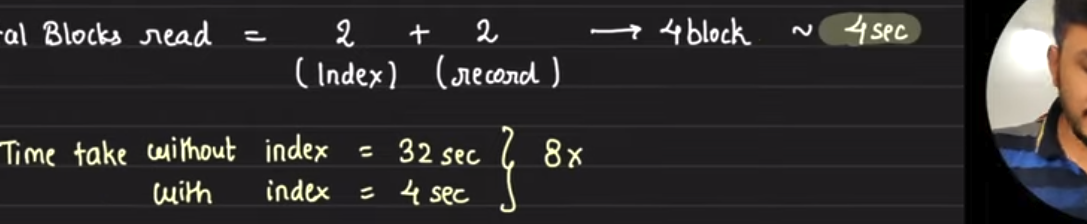 al Blocks read = 2 + 2 → 4 block ~ 4 sec
(Index) (record)
Time take without index = 32 sec } 8x
with index = 4 sec